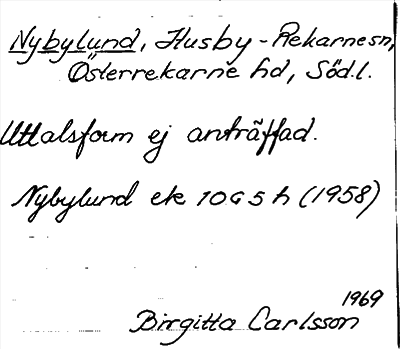 Nybylund, Husby-Rekarne sn,
Österrekarne hd, Södl.
Uttalsform ej anträffad.
Nybylund ek 10G5h (1958)
1969
Birgitta Carlsson